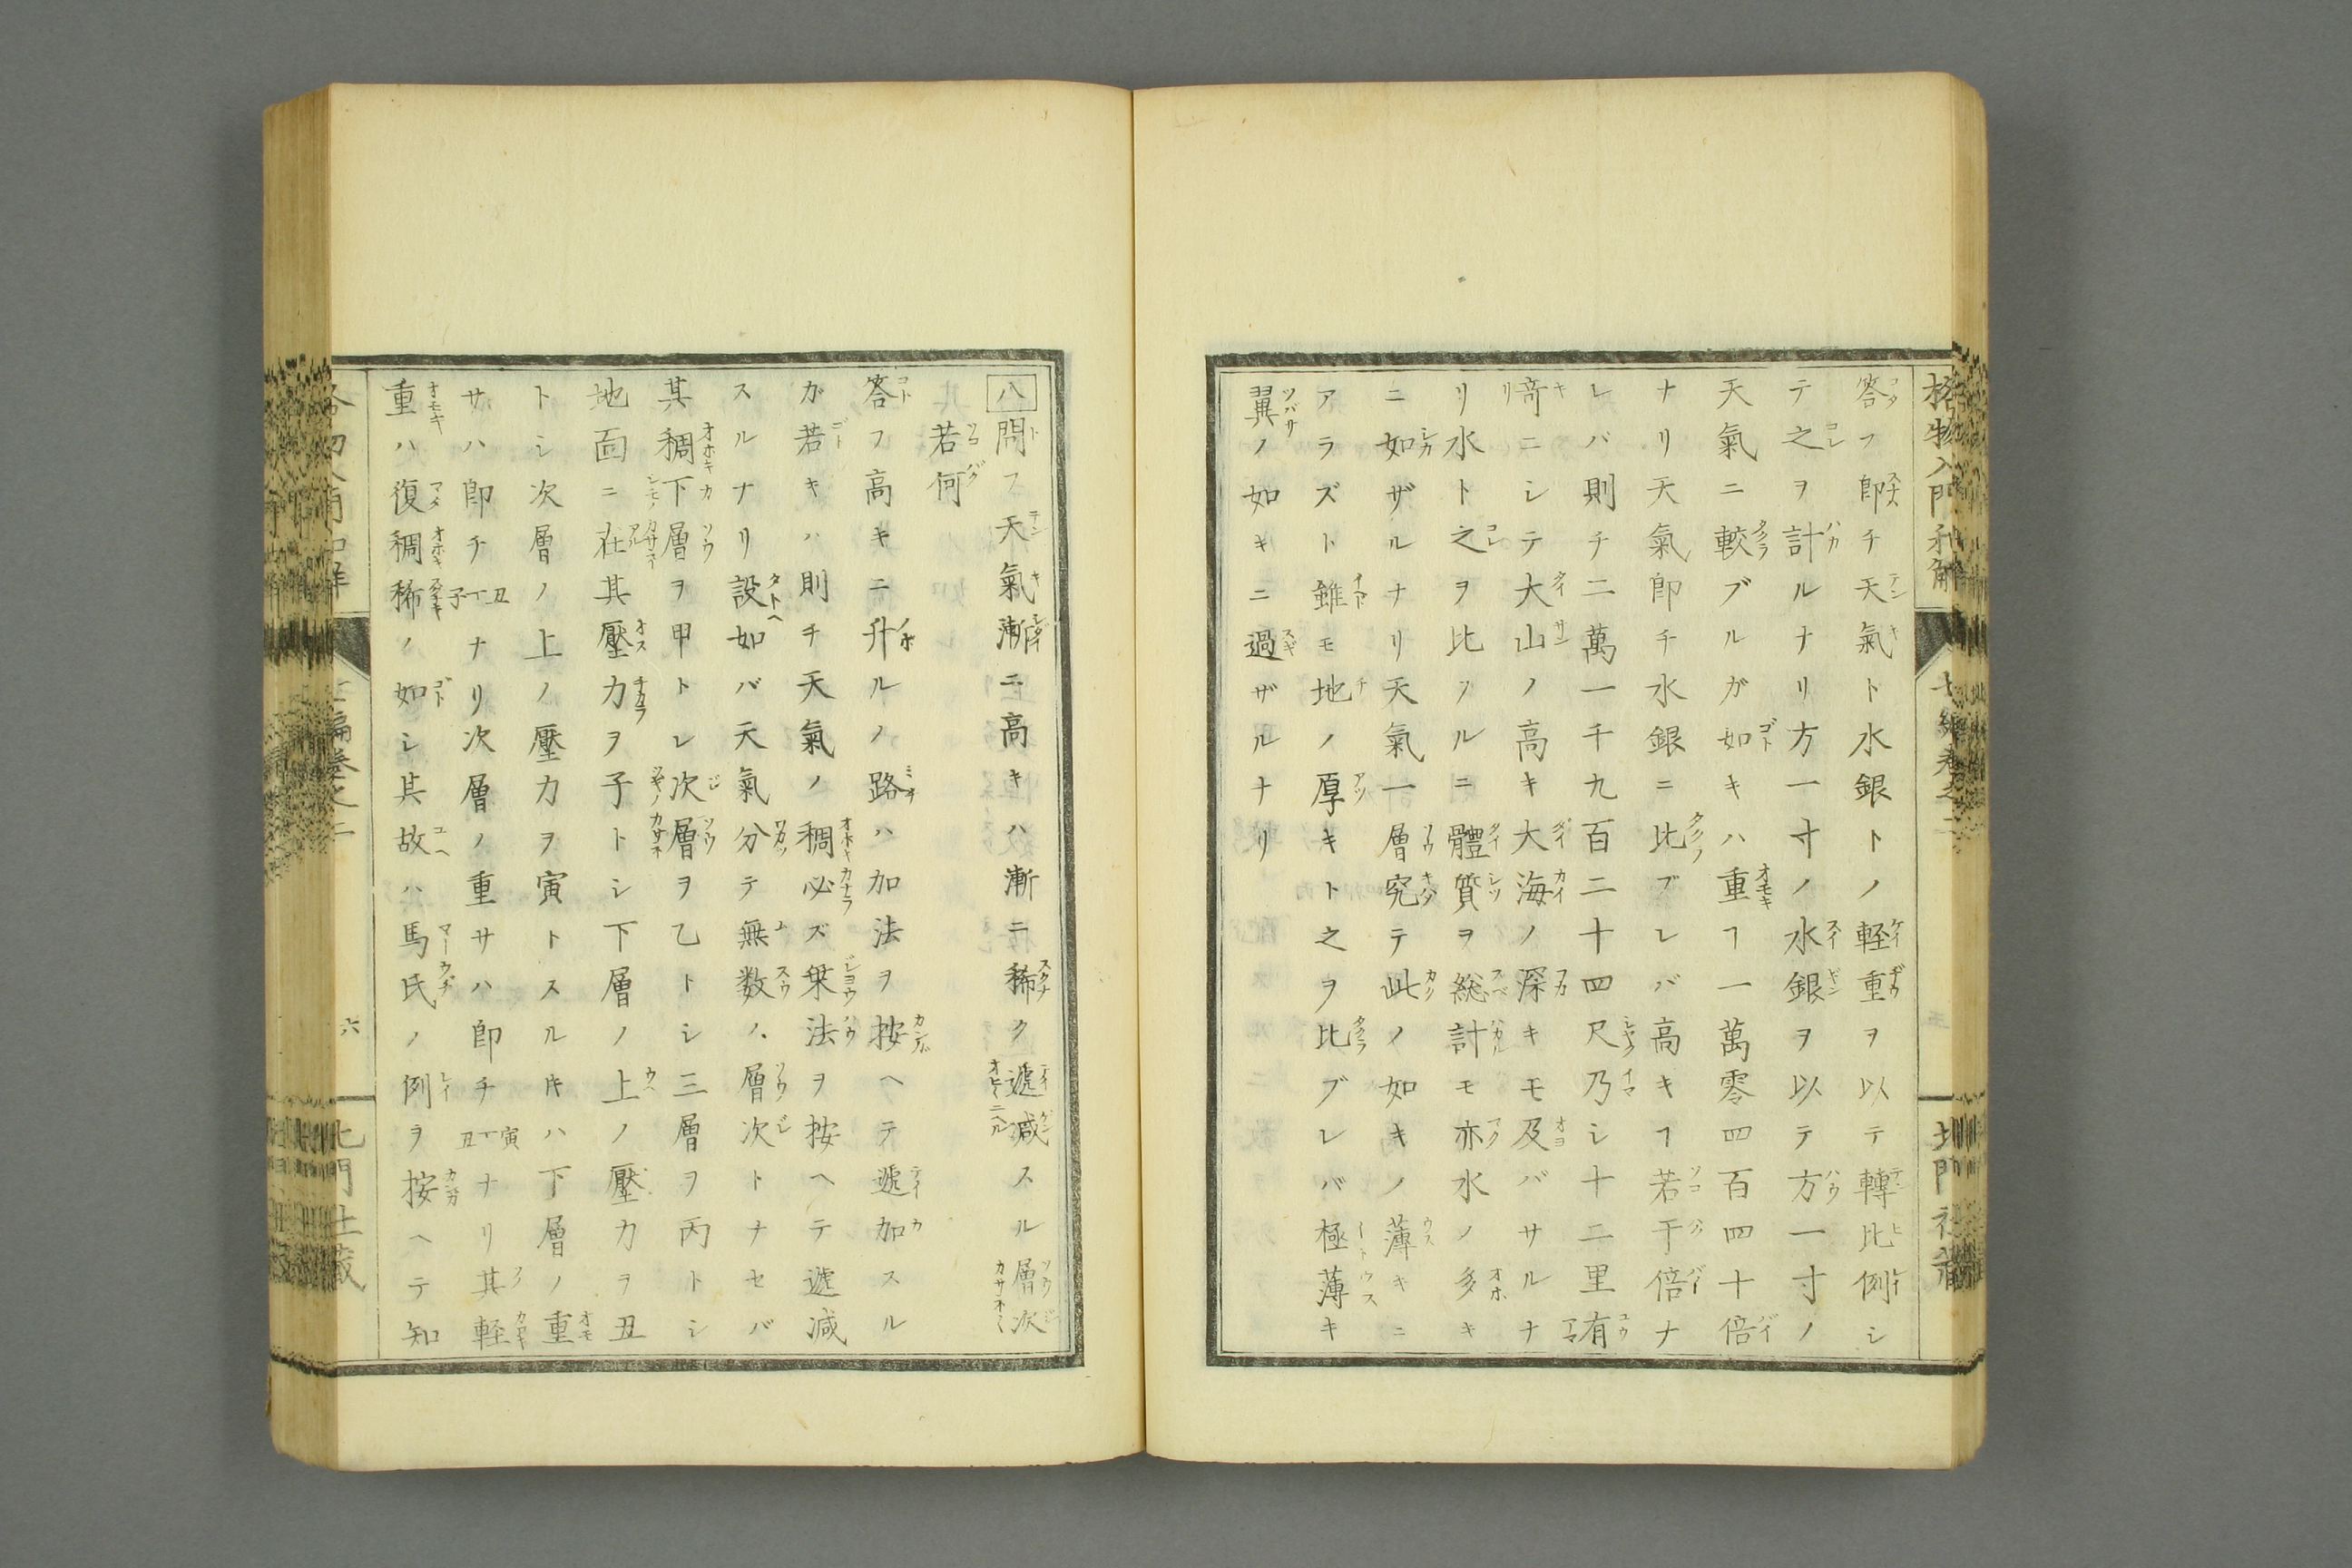 格物入門和解
七編卷之二
北門社藏
答フ卽チ天氣ト水銀トノ輕重ヲ以テ轉比例シ
テ之ヲ計ルナリ方一寸ノ水銀ヲ以テ方一寸ノ
天氣ニ較ブルガ如キハ重ヿ一萬零四百四十倍
ナリ天氣卽チ水銀ニ比ブレバ高キヿ若干倍ナ
レバ則チ二萬一千九百二十四尺乃シ十二里有
奇ニシテ大山ノ高キ大海ノ深キモ及バサルナ
リ水ト之ヲ比ブルニ體質ヲ総計モ亦水ノ多キ
ニ如ザルナリ天氣一層究テ此ノ如キノ薄キニ
アラズト雖モ地ノ厚キト之ヲ比ブレバ極薄キ
翼ノ如キニ過ザルナリ
八問フ天氣漸ニ高キハ漸ニ稀ク遞減スル層次
若何
答フ高キニ升ルノ路ハ加法ヲ按ヘテ遞加スル
ガ若キハ則チ天氣ノ稠必ズ乗法ヲ按ヘテ遞減
スルナリ設如バ天氣分テ無数ノ層次トナセバ
其稠下層ヲ甲トレ次層ヲ乙トシ三層ヲ丙トシ
地面ニ在其壓力ヲ子トシ下層ノ上ノ壓力ヲ丑
トシ次層ノ上ノ壓力ヲ寅トスル𪜈ハ下層ノ重
サハ卽チ子丅丑ナリ次層ノ重サハ卽チ丑丅寅ナリ其輕
重ハ復稠稀ノ如シ其故ハ馬氏ノ例ヲ按ヘテ知
六
北門社藏